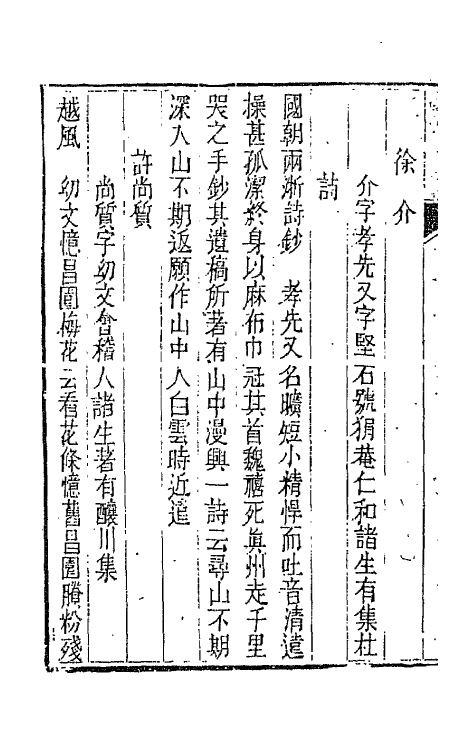 徐介
介字孝先又字堅石號狷菴仁和諸生有集杜
詩
國朝兩浙詩鈔　孝先又名曠短小精悍而吐音清遠
操甚孤潔終身以麻布巾冠其首魏禧死眞州走千里
哭之手鈔其遺稿所著有山中漫興一詩云尋山不期
深入山不期返願作山中人白雲時近遠
許尚質
尚質字幼文會稽人諸生著有釀川集
越風　幼文憶昌園梅花云看花條憶舊昌園賸粉殘